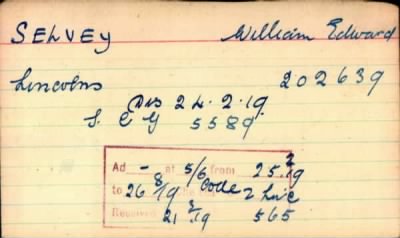 SELVEY William Edward
Lincolns 202639
Dis 24.2.19.
S. E G 5589
Ad - at 5/6 from 25.2.19
to 26/8/19 Code 2 Linc
Received 21.3.19 565